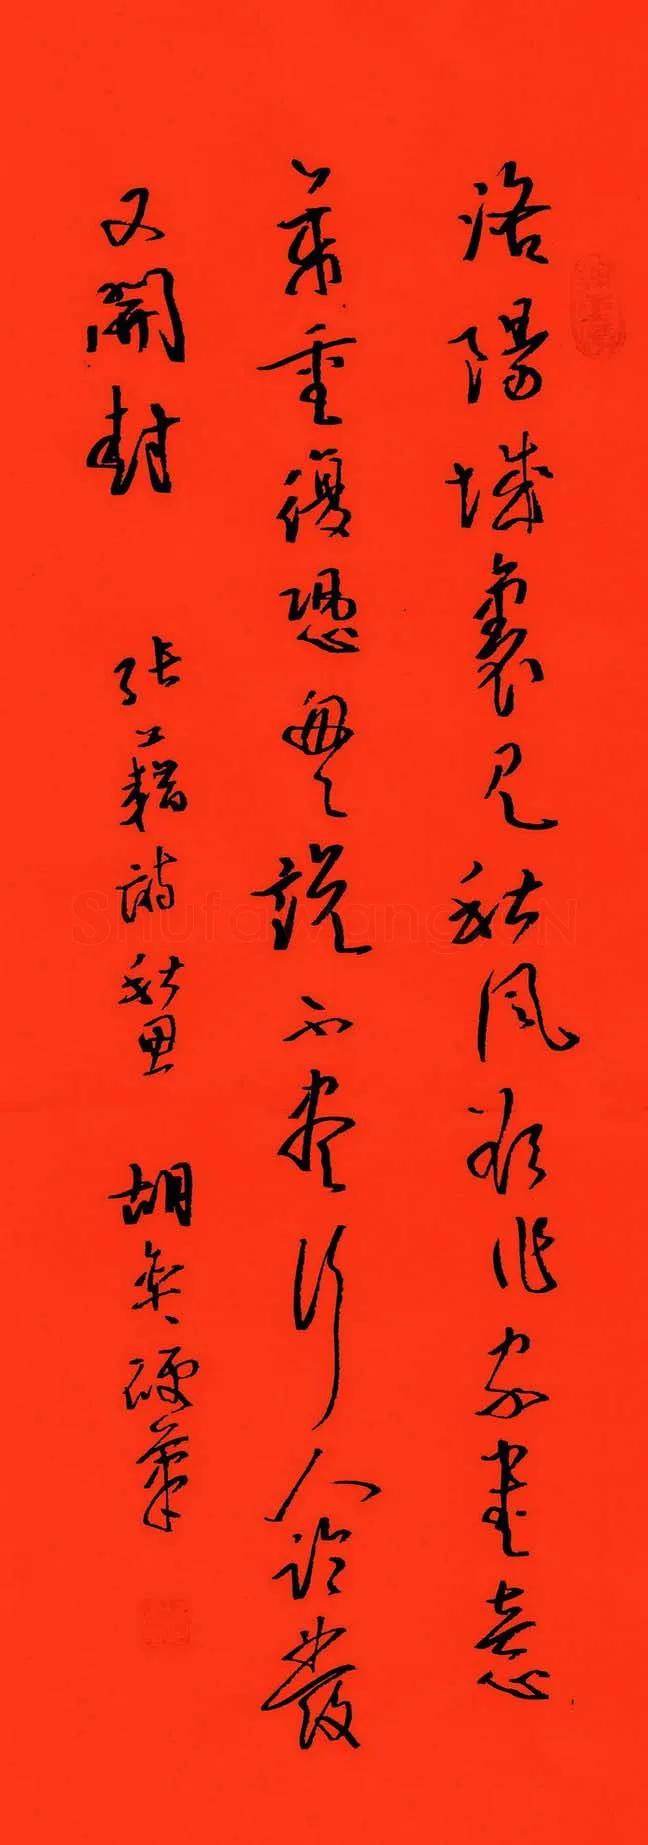 洛陽城裏見秋風欲作家書意
萬重復恐匆〻說不盡行人臨發
又開封 張籍詩秋思 胡 硬筆